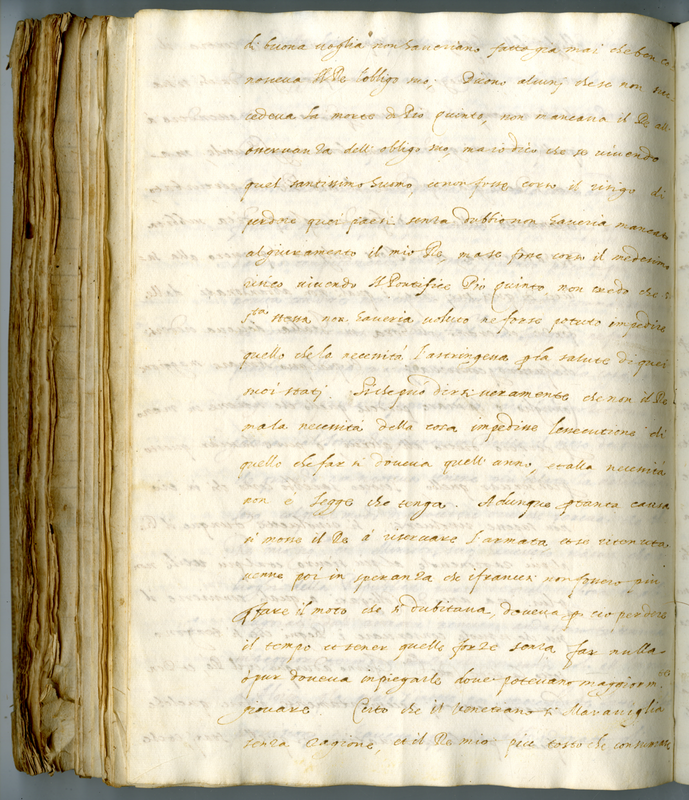 di buona voglia non haveriano fatto gia mai che ben co
nosceva il Re l'obligo suo, Dicono alcuni che se non suc
cedeva la morte di Pio quinto, non mancava il Re all
osservanza dell' obligo suo, ma io dico che se vivendo
quel santissimo huomo, et non fosse corso il risigo di
perdere quei paesi senza dubbio non haveria mancato
al giuramento il mio Re, ma se fosse corso il medesimo
risico vivendo il Pontifice Pio quinto non credo che
sta stessa non haveria voluto ne forse potuto impedire
quello che la necessità l'astringeva p la salute di quei
suoi stati. Si che può dirsi veramente che non il Re
ma la necessità della cosa impedisse l'essecutione di
quello che far si doveva quell' anno, et alla necessità
non è legge che tenga. Adunque p tanta causa
si mosse il Re à riservare l'armata, cosa
venne poi in speranza che i francesi non fossero piu
p fare il moto che si dubitava, doveva p cio perdere
il tempo et tener quelle forze senza far nulla
o pur doveva inpiegarle dove potevano maggiorm.te
giovare Certo che il Venetiano si Maraviglia
senza ragione, et il Re mio piu tosto che consumare